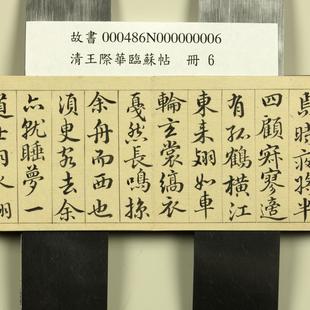 故書 000486N000000006
清王際華臨蘇帖 冊 6
時夜將半
四顧寂寥適
有孤鶴橫江
東來翅如車
輪玄裳縞衣
戛然長鳴掠
余舟而西也
須臾客去余
亦就睡夢一
道士羽衣翩